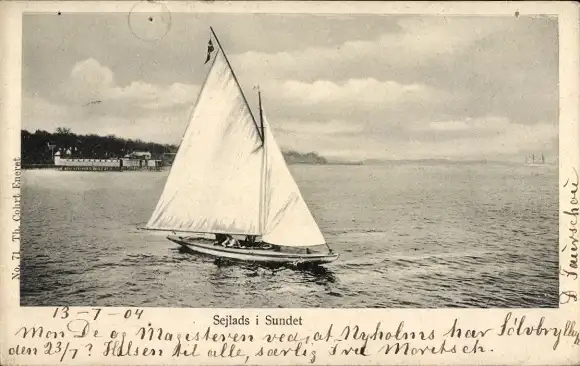 No. 71 Th. Cohrt Eneret
Sejlads i Sundet
13-7-04
Mon De og Magisteren ved, at Nyholms har Sølvbryllup
den 23/7? Hilsen til alle, særlig Fru Moritsch.